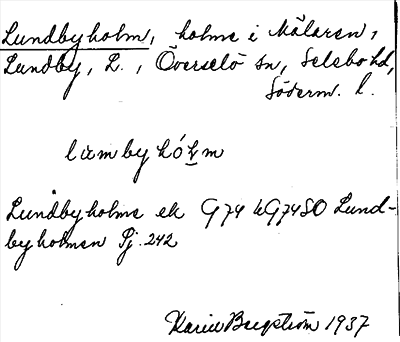 Lundbyholm, holme i Mälaren,
Lundby, L., Överselö sn, Selebo hd,
Söderm. l.
lumbyhólm
Lundbyholme ek G74 hG74SO Lund-
byholmen Sj. 242
Karin Bergström 1937